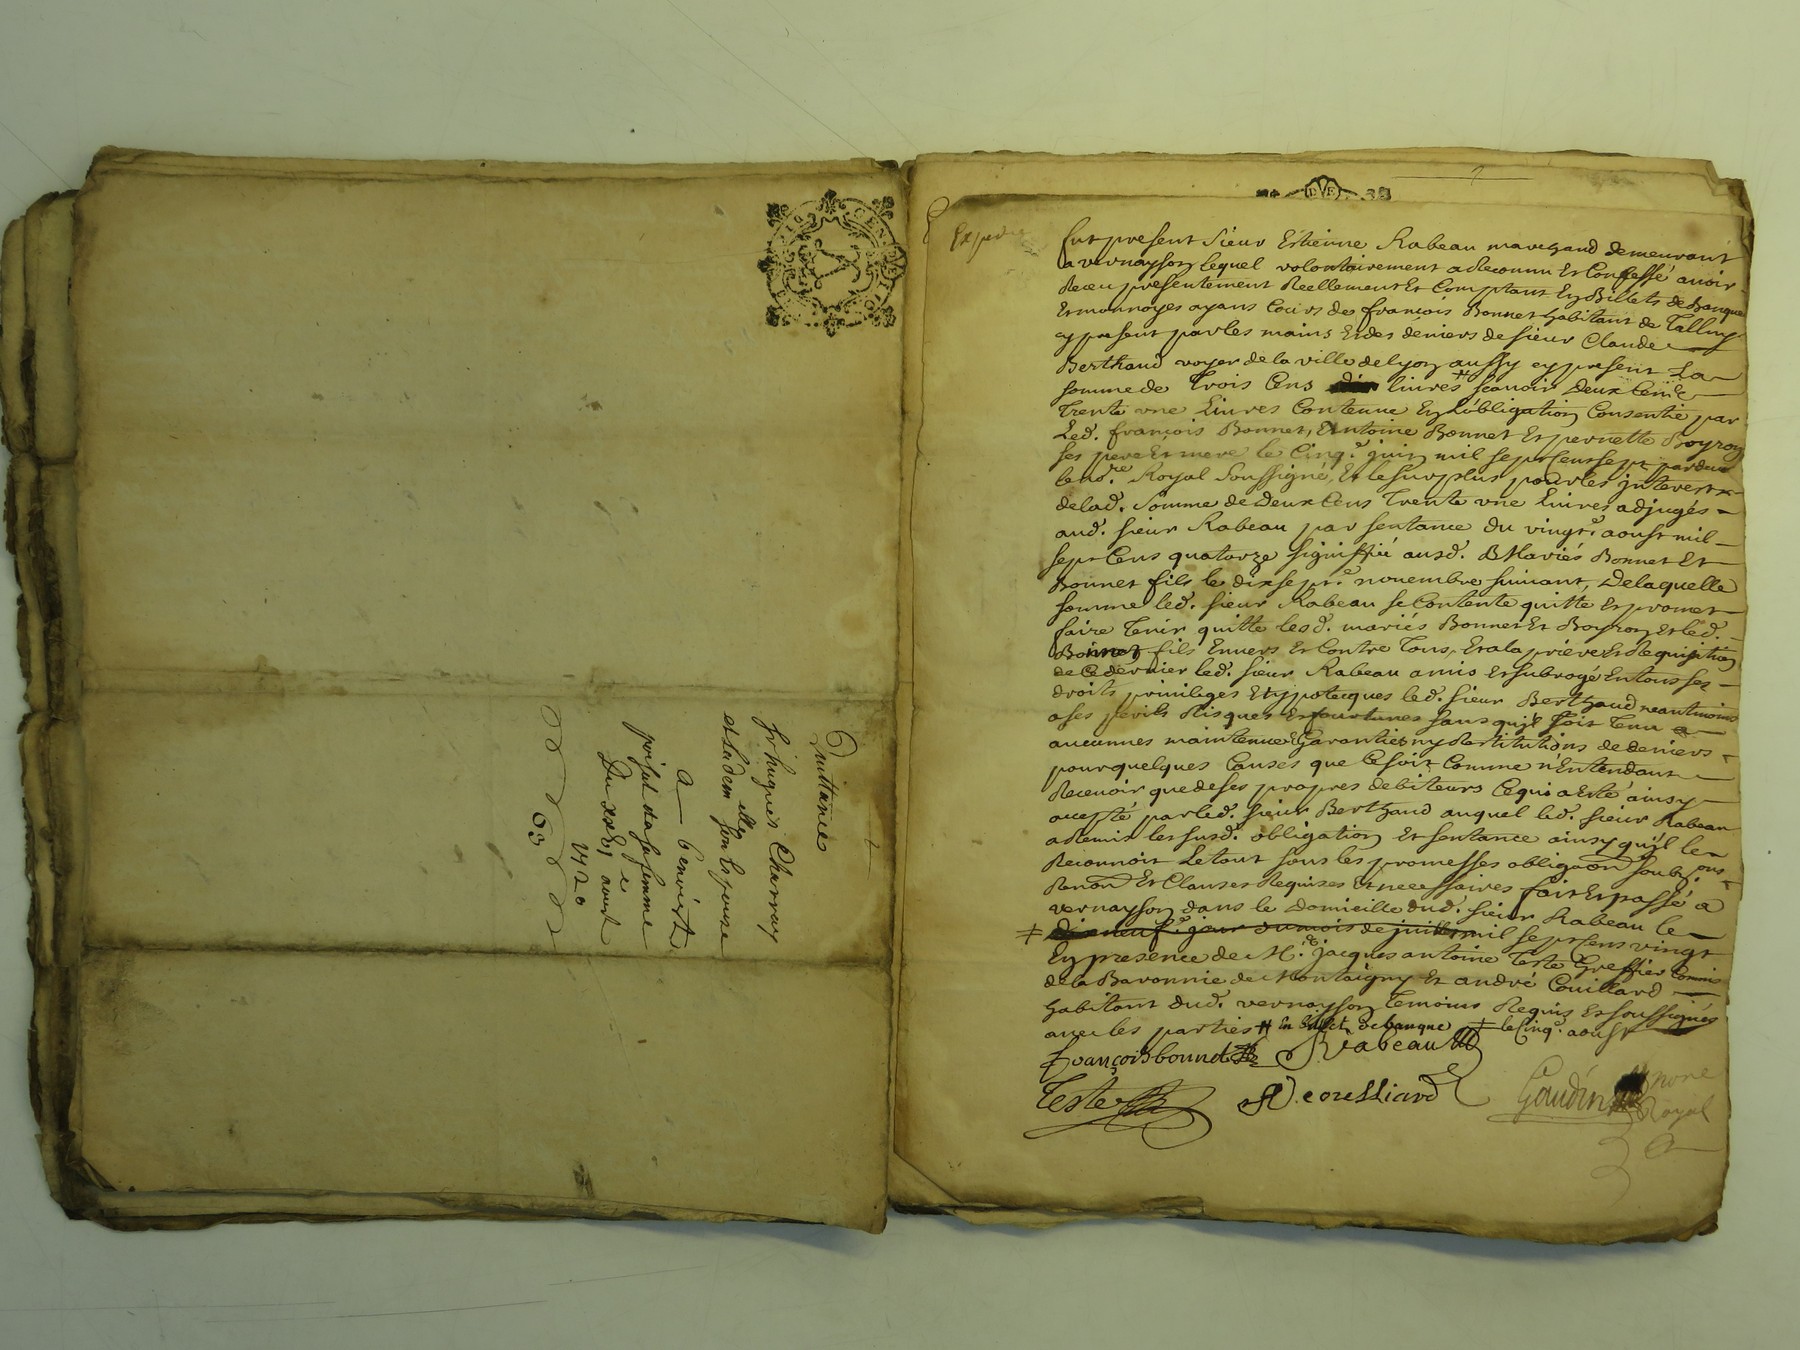 Quittance
Sr hugues Charvoy
et lad. dem.lle son Espouse
A
benoist
poisat et sa femme
Du xxe aoust
1720
63
Expedié
fut present Sieur Estienne Rabeau marchand demeurant
a vernayson lequel volontairement a Reconnu Et Confessé avoir
Receu presentement Reellement Et Comptant En Billets de Banque
Et monnoyes ayans Cours de françois Bonnet habitant de Talluy
cy present par les mains Et des deniers de sieur Claude
Berthaud voyer de la ville de lyon aussy cy present La
somme de Trois Cens livres # scavoir Deux Cens
Trente une Livres Contenue En L'obligation Consentie par
Led. françois Bonnet, Antoine Bonnet Et pernette Boyron
ses pere Et mere le Cinq.e juin mil sept Cens sept par devt
le no.re Royal Soussigné, Et le surplus pour les jnterests
de lad. Somme de Deux Cens Trente une Livres adjugés
aud. sieur Rabeau par sentance du vingt.e aoust mil
sept Cens quatorze signiffiée ausd. Mariés Bonnet Et
Bonnet fils le dix sept.e novembre suivant, De laquelle
somme led. sieur Rabeau se Contente quitte Et promet
faire Tenir quitte lesd. mariés Bonnet Et Boyron Et led.
Bonnet fils Envers Et Contre Tous, Et a la priere Et Requisition
de Ce dernier led. sieur Rabeau a mis Et subrogé En tous ses
droits privileges Et ypotecques led. sieur Berthaud neantmoins
a ses perils Risques Et fourtunes sans qu'jl soit Tenu a
aucunnes maintenue Garanties ny Restitutions de deniers
pour quelques Causes que Ce soit Comme n'Entendant
Recevoir que de ses propres debiteurs Ce qui a Esté ainsy
accepté par led. sieur Berthaud auquel led. sieur Rabeau
a Remis les susd. obligation Et sentance ainsy qu'jl le
Reconnoit Le tout sous les promesses obligaon soubz ons
Renon Et Clauses Requises Et necessaires fait Et passé a
vernayson dans le Domicille dud. sieur Rabeau le
‡ dix neuf.e jour du mois de juillet mil sept Cens vingt
En presence de M.e jacques antoine Teste Greffier Commis
de la Baronnie de Montaigny Et andré Couillard
habitant dud. vernayson Temoins Requis Et soussignés
avec les parties # En billet de banque ‡ le Cinq.e aoust
françois bonnet Rabeau
Teste A. Couilliard Gaudin no.re
Royal